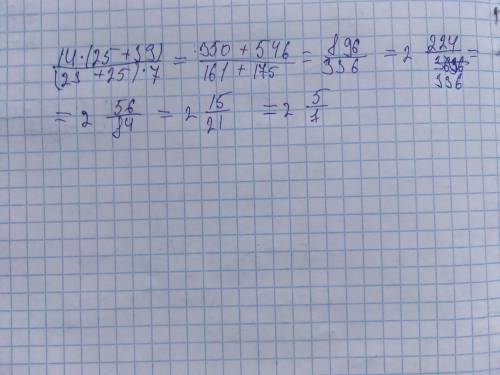 14·(25+39)/(23+25)·7 = 350+546/161+175 = 896/336 = 2 224/336 =
= 2 56/84 = 2 15/21 = 2 5/7